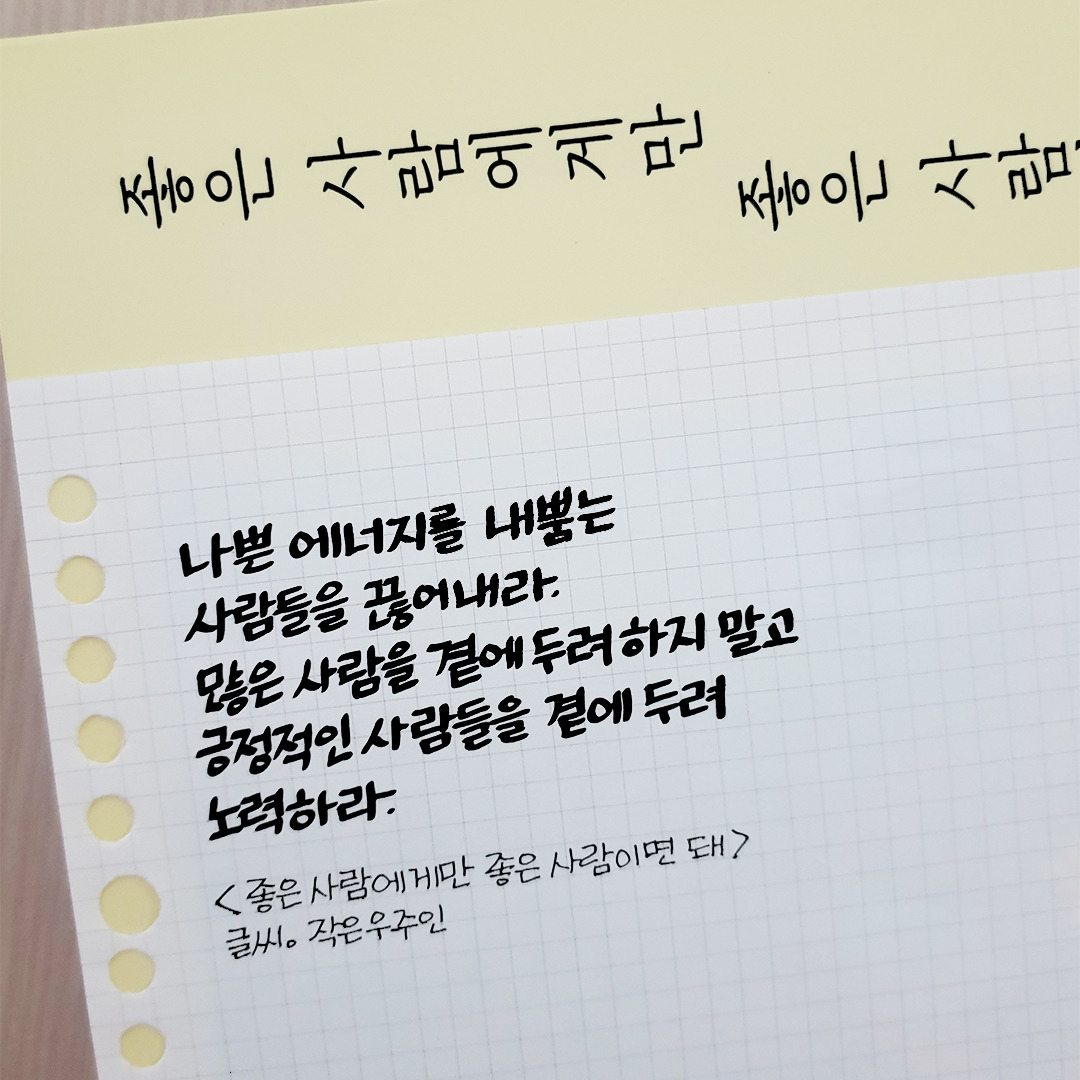 좋은 사람에게만 좋은 사람
나쁜 에너지를 내뿜는
사람들을 끊어내라.
많은 사람을 곁에 두려 하지 말고
긍정적인 사람들을 곁에 두려
노력하라.
<좋은 사람에게만 좋은 사람이면 돼>
글씨。작은우주인